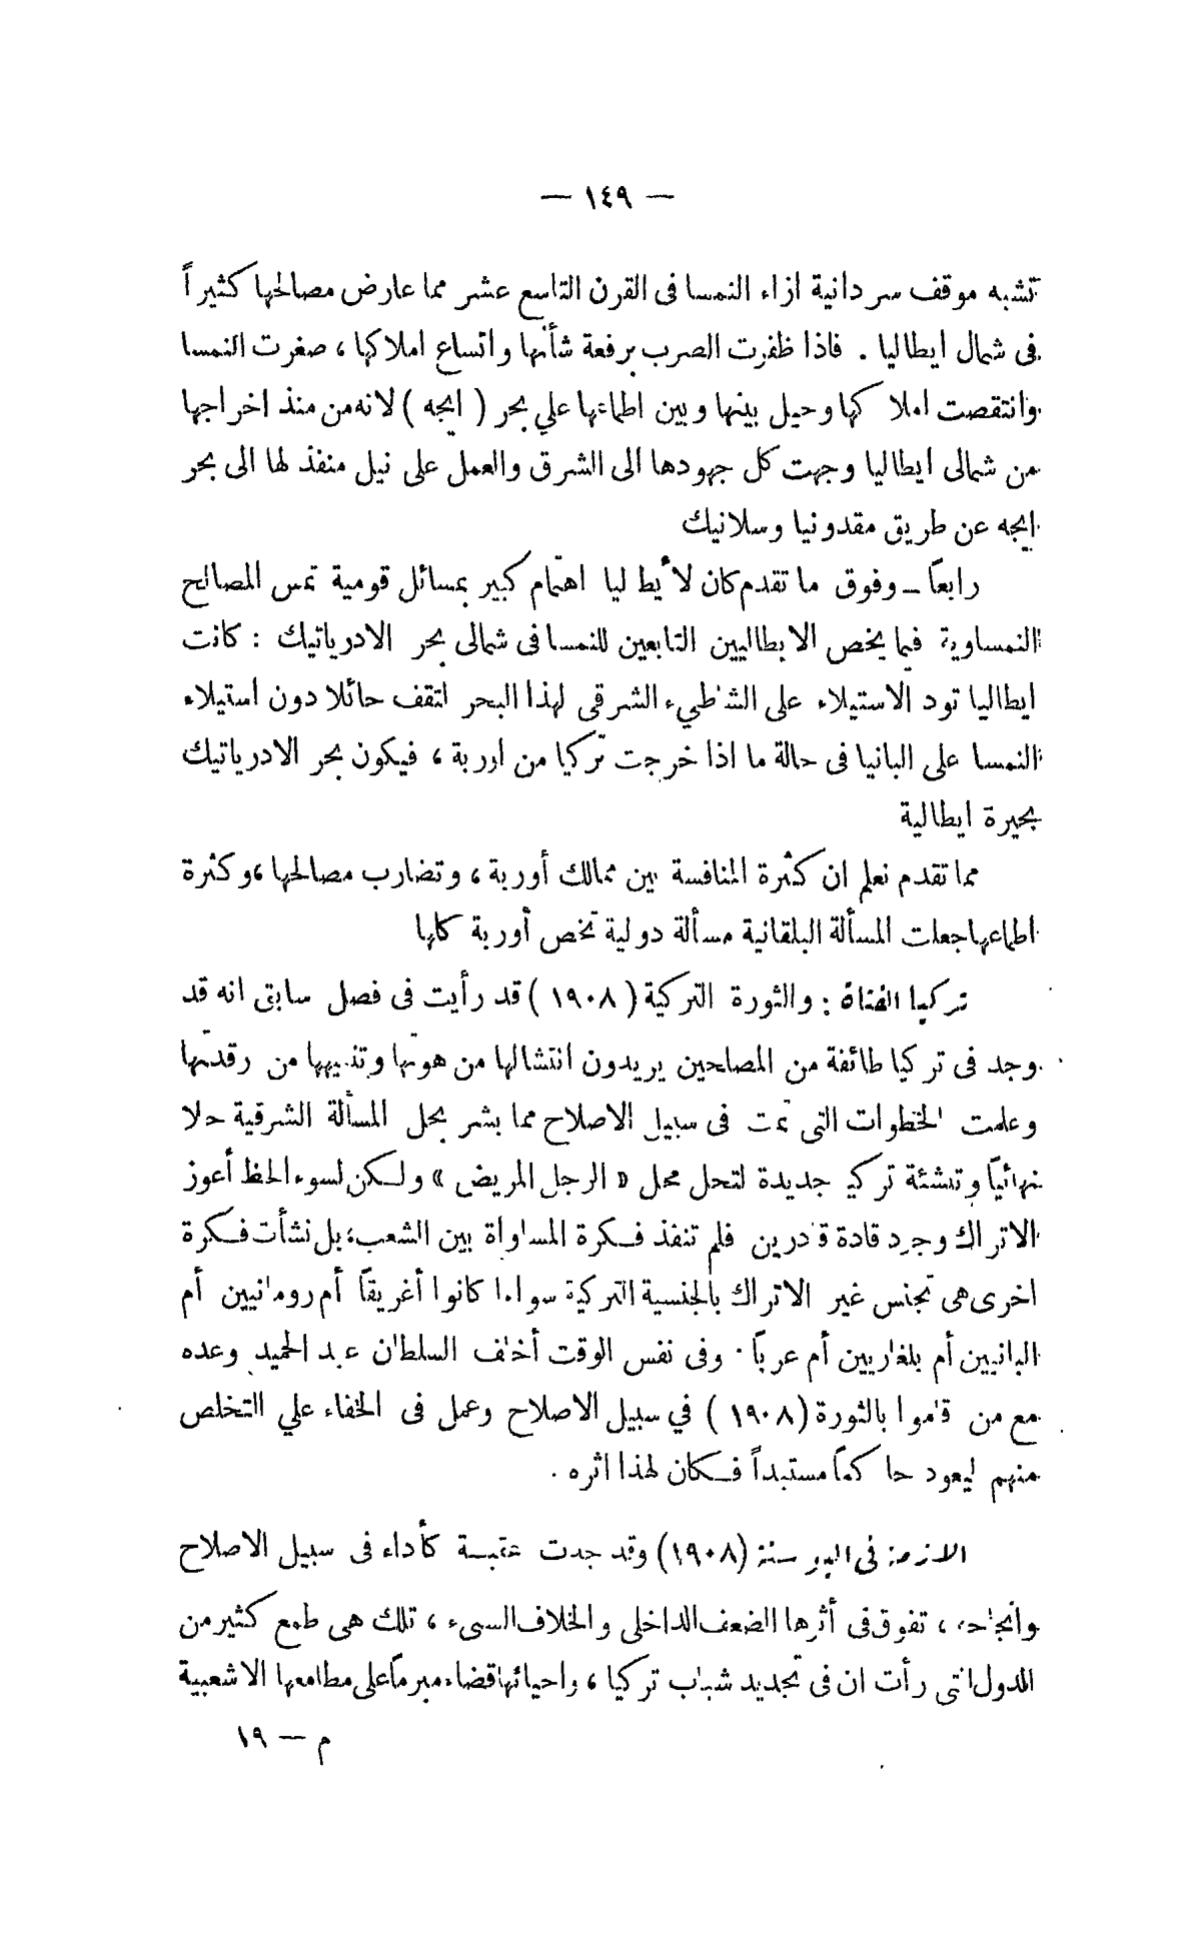 — ١٤٩ —
تشبه موقف سردانية ازاء النمسا فى القرن التاسع عشر مما عارض مصالحها كثيراً
فى شمال ايطاليا . فاذا ظفرت الصرب برفعة شأنها واتساع املاكها ، صغرت النمسا
وانتقصت املاكها وحيل بينها وبين اطماعها علي بحر ( ايجه ) لانه من منذ اخراجها
من شمالى ايطاليا وجهت كل جهودها الى الشرق والعمل على نيل منفذ لها الى بحر
ايجه عن طريق مقدونيا وسلانيك
رابعاً — وفوق ما تقدم كان لأيطاليا اهتمام كبير بمسائل قومية تمس المصالح
النمساوية فيما يخص الايطاليين التابعين للنمسا فى شمالى بحر الادرياتيك : كانت
ايطاليا تود الاستيلاء على الشاطيء الشرقى لهذا البحر لتقف حائلا دون استيلاء
النمسا على البانيا فى حالة ما اذا خرجت تركيا من اوربة ، فيكون بحر الادرياتيك
بحيرة ايطالية
مما تقدم نعلم ان كثرة المنافسة بين ممالك أوربة ، وتضارب مصالحها ، وكثرة
اطماعها جعلت المسألة البلقانية مسألة دولية تخص أوربة كلها
تركيا الفتاة : والثورة التركية ( ١٩٠٨ ) قد رأيت فى فصل سابق انه قد
وجد فى تركيا طائفة من المصلحين يريدون انتشالها من هوتها وتنبيهها من رقدتها
وعلمت الخطوات التى تمت فى سبيل الاصلاح مما بشر بحل المسألة الشرقية حلا
نهائياً وتنشئة تركيا جديدة لتحل محل « الرجل المريض » ولكن لسوء الحظ أعوز
الاتراك وجود قادة قادرين فلم تنفذ فكرة المساواة بين الشعب ؛ بل نشأت فكرة
اخرى هى تجنس غير الاتراك بالجنسية التركية سواءا كانوا أغريقاً أم رومانيين أم
البانيين أم بلغاريين أم عرباً . وفى نفس الوقت أخلف السلطان عبد الحميد وعده
مع من قاموا بالثورة ( ١٩٠٨ ) في سبيل الاصلاح وعمل فى الخفاء علي التخلص
منهم ليعود حاكماً مستبداً فكان لهذا اثره .
الازمة في سنة (١٩٠٨) وقد جدت عقبة كأداء فى سبيل الاصلاح
وانجاحه ، تفوق فى أثرها الضعف الداخلى والخلاف السىء ، تلك هى طمع كثير من
الدول التى رأت ان فى تجديد شباب تركيا ، واحيائها قضاء مبرماً على مطامعها الاشعبية
م — ١٩